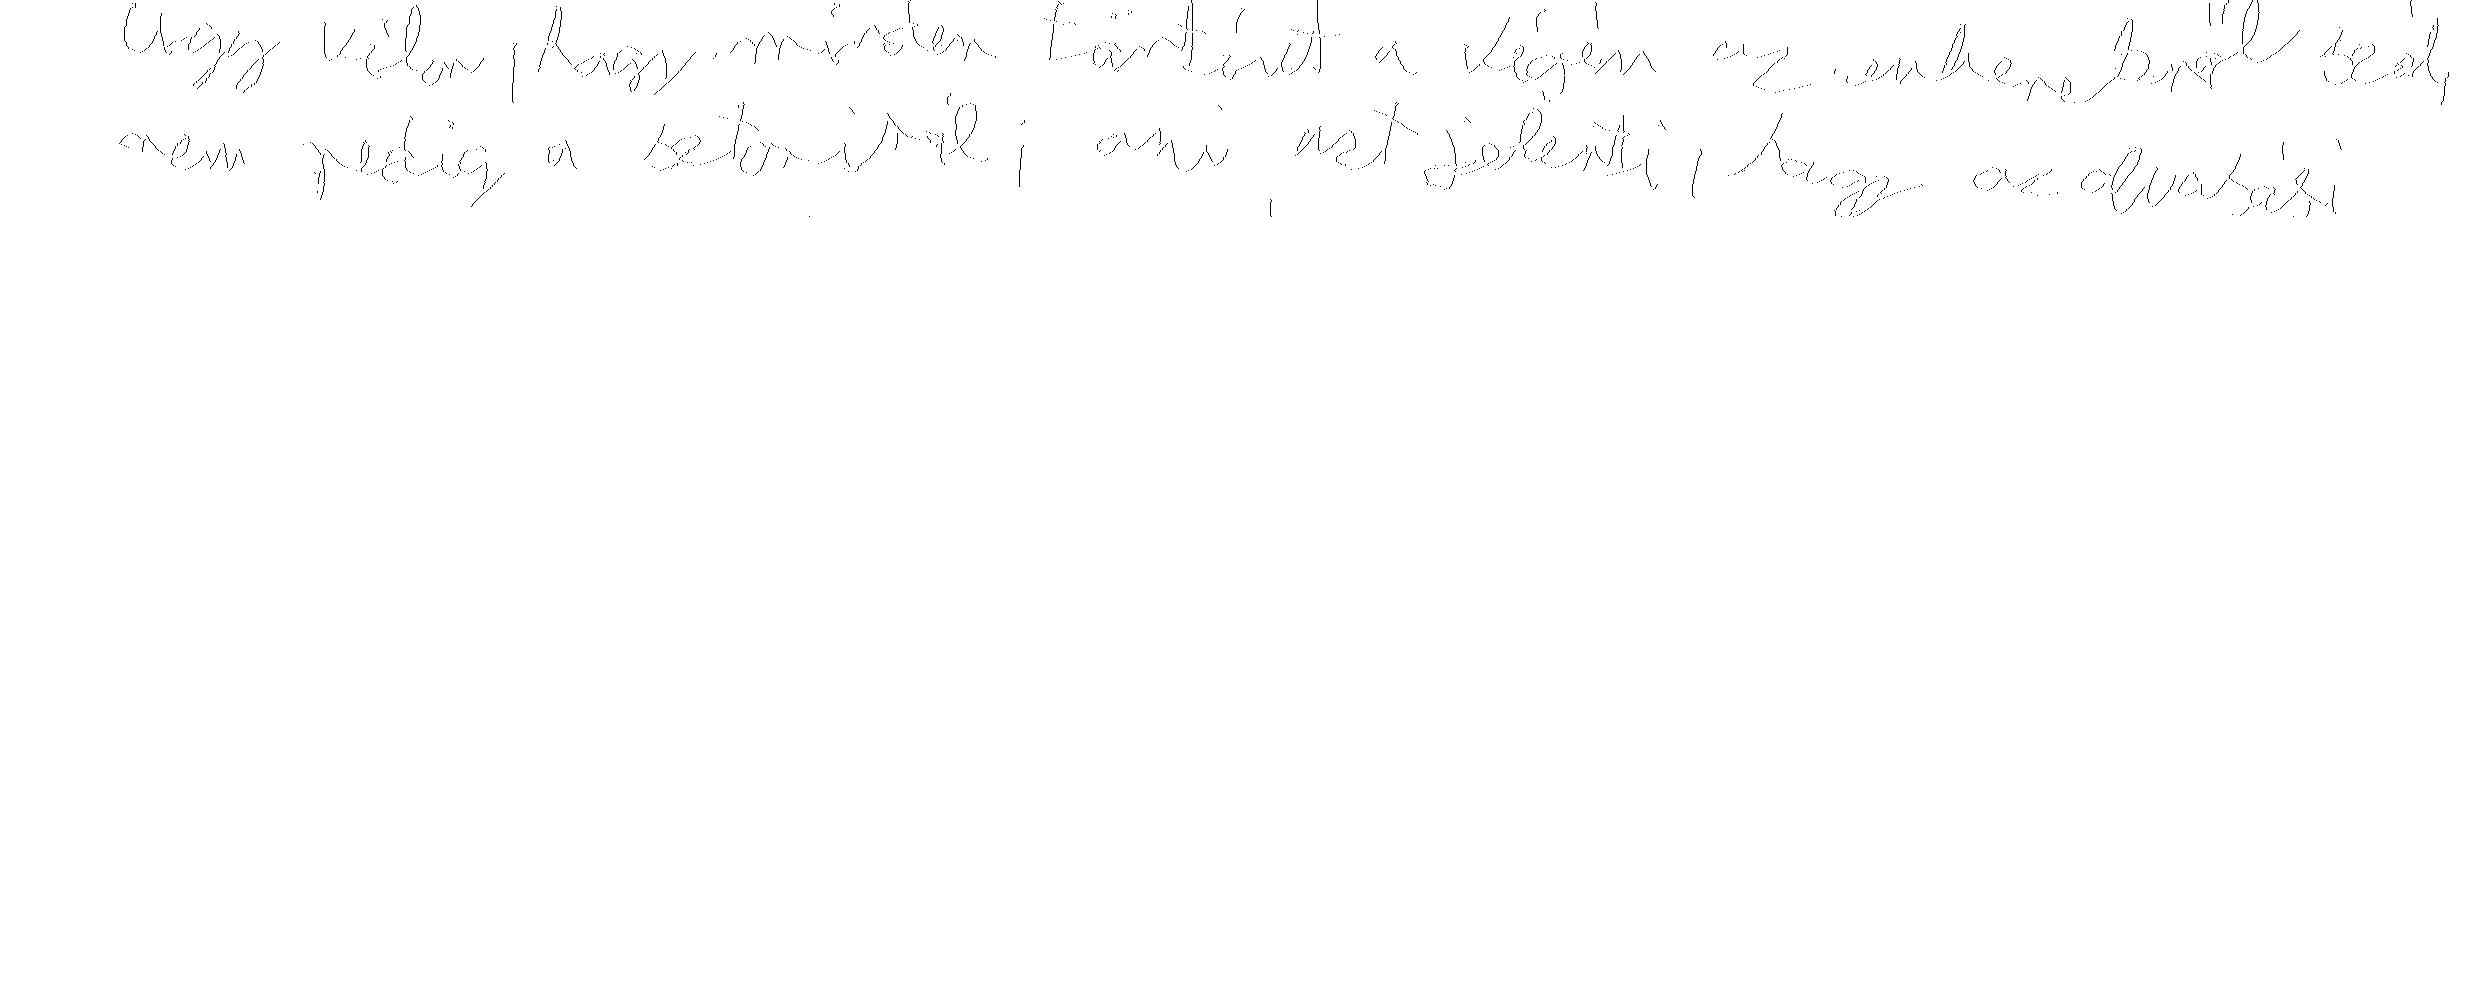 Úgy vélem, hogy minden történet a végén az emberekről szól,
nem pedig a sztorikról, ami azt jelenti, hogy az olvasási